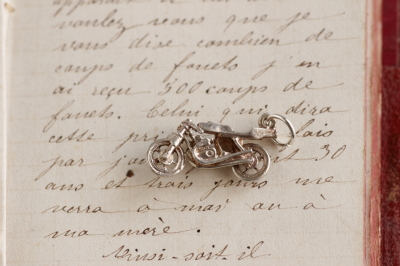 voulez vous que je
vous dise combien de
coups de fouets j'en
ai reçu 500 coups de
fouets. Celui qui dira
cette
par 30
ans et trois jours me
verra à moi ou à
ma mère.
Ainsi-soit-il